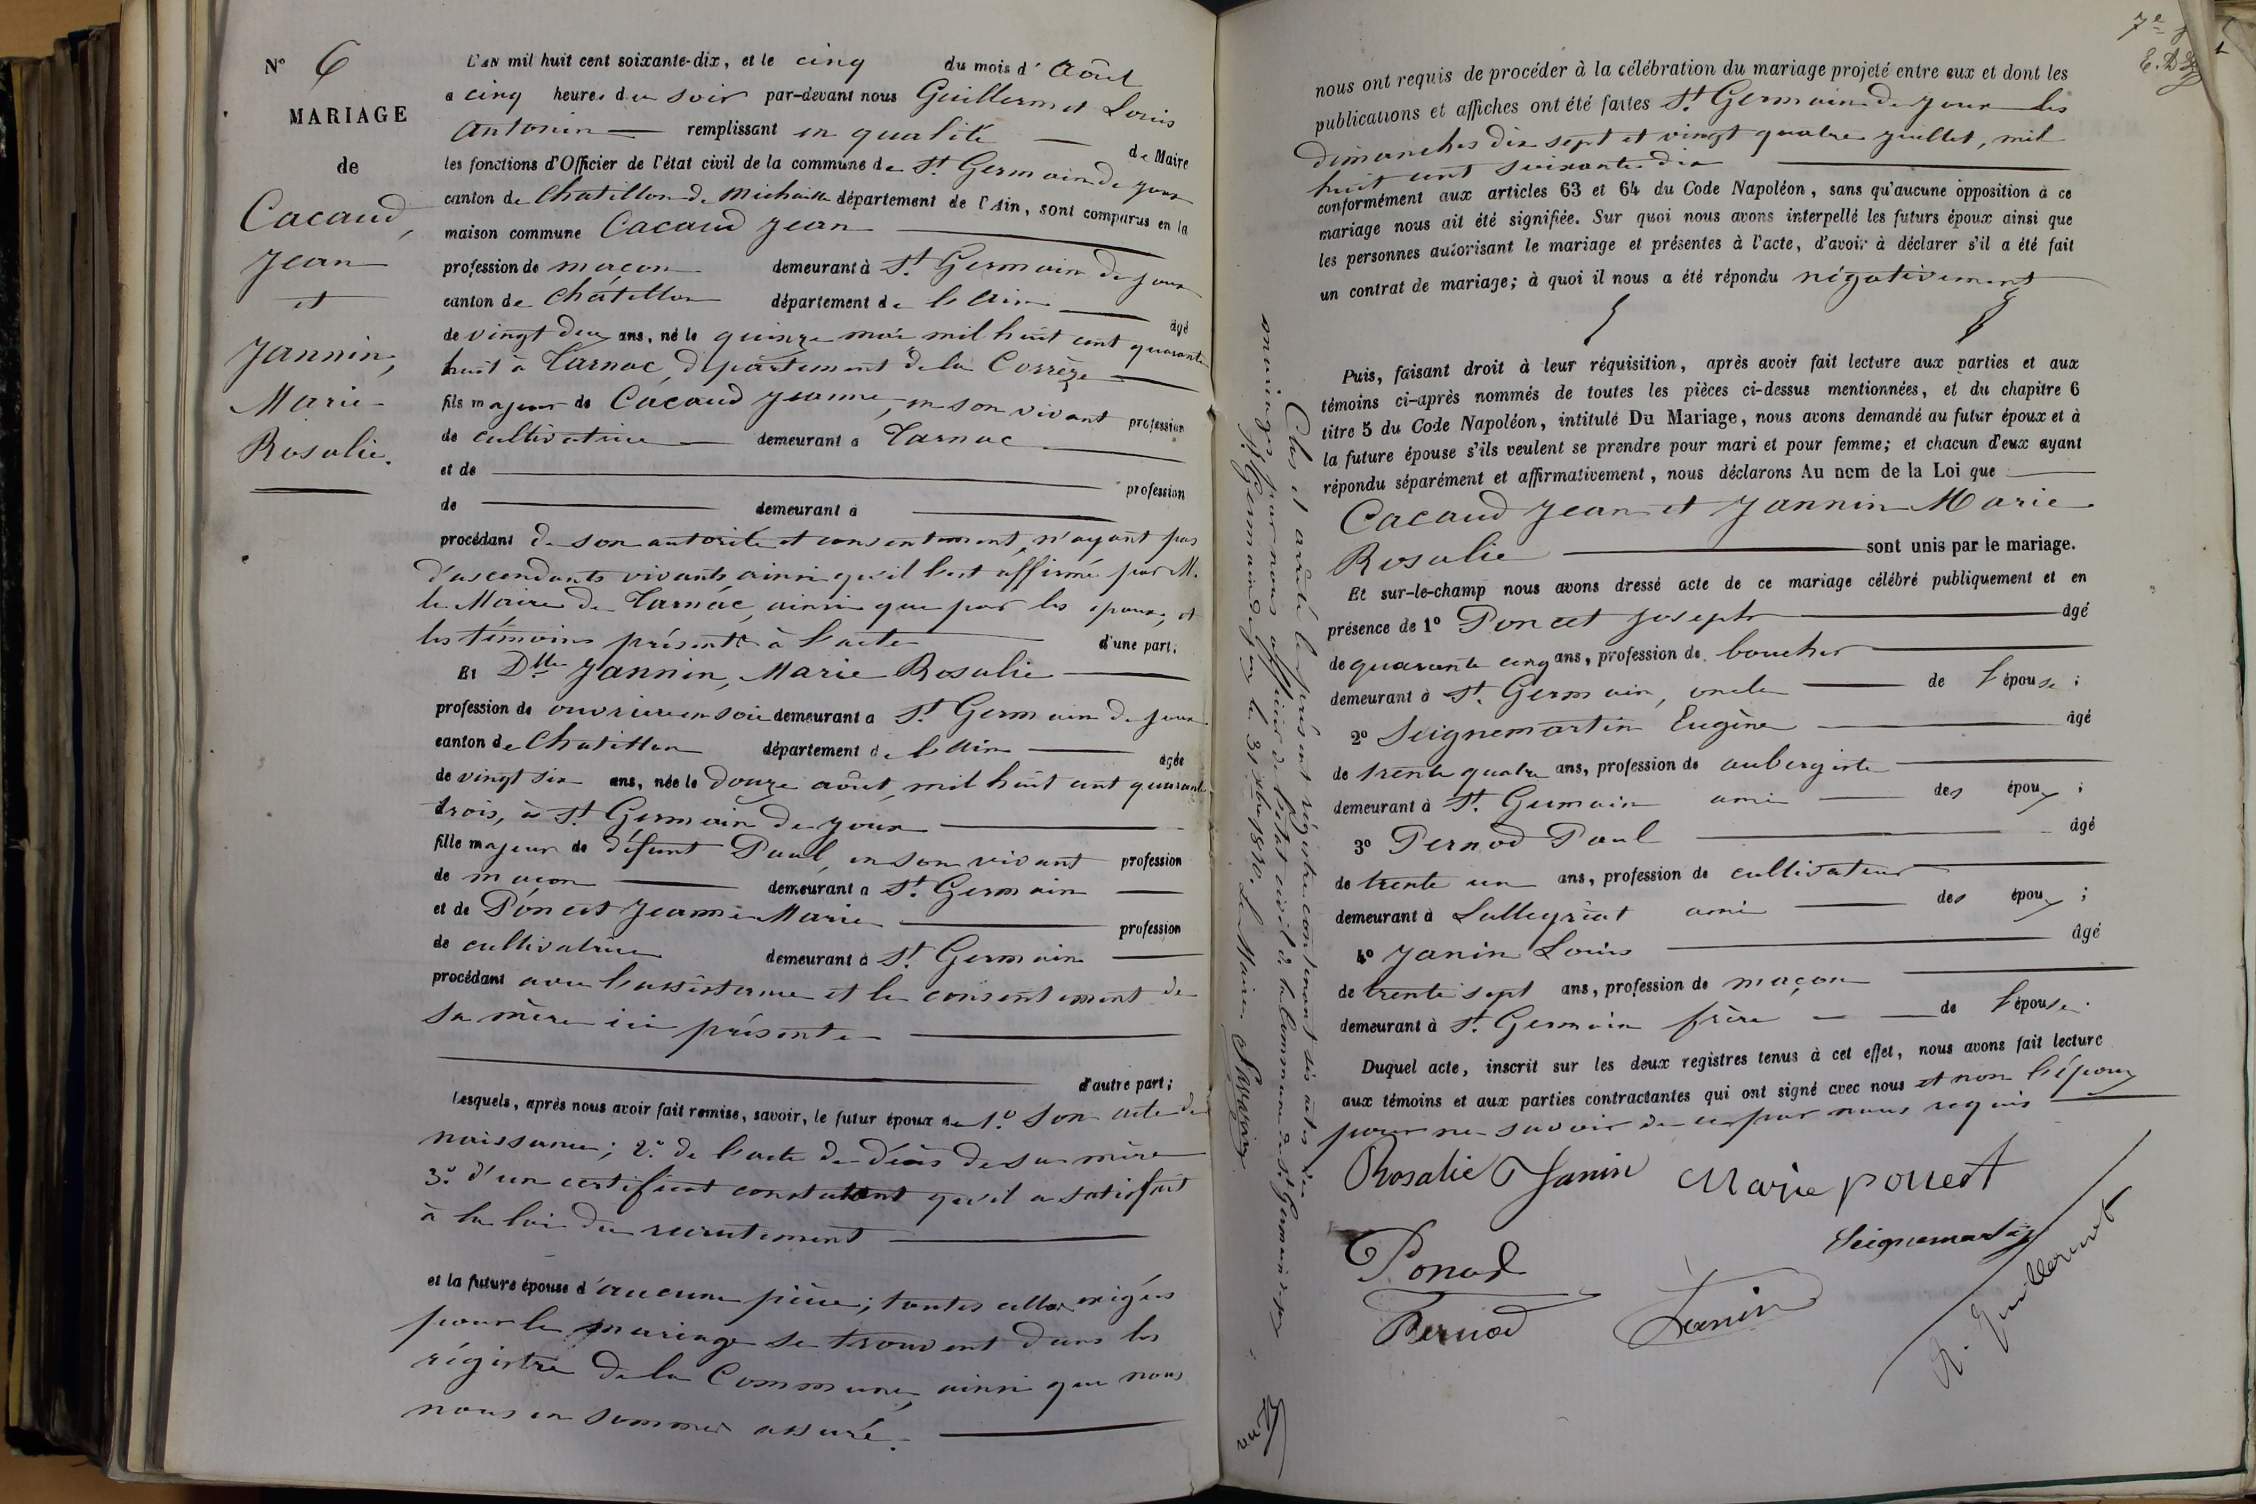 N° 6
MARIAGE
de
Cacaud,
Jean
et
Jannin,
Marie
Rosalie.
L'AN mil huit cent soixante-dix, et le cinq du mois d'Août
a cinq heures du soir par-devant nous Guillermet Louis
Antonin remplissant en qualité de Maire
les fonctions d'Officier de l'état civil de la commune de St Germain de Joux
canton de Chatillon de Michaille département de l'Ain, sont comparus en la
maison commune Cacaud Jean
profession de maçon demeurant à St Germain de Joux
canton de Châtillon département de l'Ain âgé
de vingt deux ans, né le quinze mai mil huit cent quarante
huit à Tarnac, département de la Corrèze
fils majeur de Cacaud Jeanne, en son vivant profession
de cultivatrice demeurant a Tarnac
et de profession
de demeurant à
procédant de son autorité et consentement, n'ayant pas
d'ascendants vivants ainsi qu'il l'est affirmé par M.
le Maire de Tarnac, ainsi que par les époux, et
les témoins présents à l'acte d'une part;
Et Dlle Jannin, Marie Rosalie
profession de ouvrière en soie demeurant a St Germain de Joux
canton de Chatillon département de l'Ain âgée
de vingt six ans, née le Douze août, mil huit cent quarante
trois, à St Germain de Joux
fille majeur de défunt Paul, en son vivant profession
de maçon demeurant a St Germain
et de Poncet Jeanne Marie profession
de cultivatrice demeurant à St Germain
procédant avec l'assistance et le consentement de
sa mère ici présente
d'autre part;
Lesquels, après nous avoir fait remise, savoir, le futur époux de 1° Son acte de
naissance; 2° de l'acte de décès de sa mère
3° d'un certificat constatant qu'il a satisfait
à la loi du recrutement
et la future épouse d'aucune pièce; toutes celles exigées
pour le mariage se trouvent dans les
régistre de la Commune, ainsi que nous
nous en sommes assuré.
Clos et arrêté le présent régistre contenant six actes de
mariages, par nous officier de l'état civil de la Commune de St Germain de Joux
St Germain de Joux le 31 Xbre 1870. Le Maire,
7e
nous ont requis de procéder à la célébration du mariage projeté entre eux et dont les
publications et affiches ont été faites St Germain de Joux les
dimanches dix sept et vingt quatre juillet, mil
huit cent soixante dix
conformément aux articles 63 et 64 du Code Napoléon, sans qu'aucune opposition à ce
mariage nous ait été signifiée. Sur quoi nous avons interpellé les futurs époux ainsi que
les personnes autorisant le mariage et présentes à l'acte, d'avoir à déclarer s'il a été fait
un contrat de mariage; à quoi il nous a été répondu négativement
Puis, faisant droit à leur réquisition, après avoir fait lecture aux parties et aux
témoins ci-après nommés de toutes les pièces ci-dessus mentionnées, et du chapitre 6
titre 5 du Code Napoléon, intitulé Du Mariage, nous avons demandé au futur époux et à
la future épouse s'ils veulent se prendre pour mari et pour femme; et chacun d'eux ayant
répondu séparément et affirmativement, nous déclarons Au nom de la Loi que
Cacaud Jean et Jannin Marie
Rosalie sont unis par le mariage.
Et sur-le-champ nous avons dressé acte de ce mariage célébré publiquement et en
présence de 1° Poncet Joseph âgé
de quarante cinq ans, profession de boucher
demeurant à St Germain, oncle de l'épouse;
2° Seignemartin Eugène âgé
de trente quatre ans, profession de aubergiste
demeurant à St Germain ami des époux;
3° Pernod Paul âgé
de trente un ans, profession de cultivateur
demeurant à Lalleyriat ami des époux;
4° Janin Louis âgé
de trente sept ans, profession de maçon
demeurant à St Germain frère de l'épouse.
Duquel acte, inscrit sur les deux registres tenus à cet effet, nous avons fait lecture
aux témoins et aux parties contractantes qui ont signé avec nous et non l'époux
pour ne savoir de ce par nous requis
Rosalie Janin Marie poncet
Seignemartin
Ponced
Pernod Janin
A. Guillermet